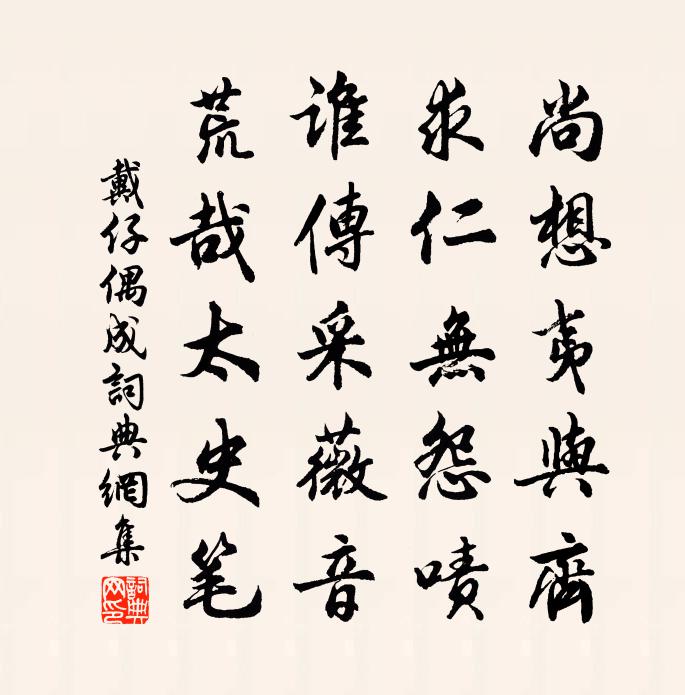 尚想夷與齊
求仁無怨嘖
誰傳采薇音
荒哉太史笔
戴仔偶成詞典網集
詞典網印